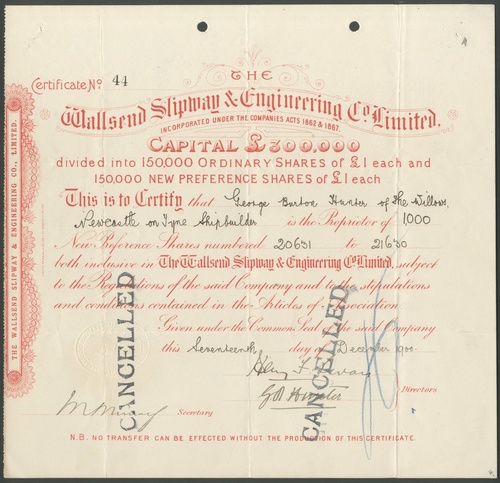 Certificate No 44
THE
Wallsend Slipway & Engineering Co Limited.
INCORPORATED UNDER THE COMPANIES ACTS 1862 & 1867.
CAPITAL £300,000
divided into 150,000 ORDINARY SHARES of £1 each and
150,000 NEW PREFERENCE SHARES of £1 each
This is to Certify that George Burton Hunter of The Willows
Newcastle on Tyne Shipbuilder is the Proprietor of 1000
New Preference Shares numbered 20631 to 21630
both inclusive in The Wallsend Slipway & Engineering Co Limited, subject
to the Regulations of the said Company and to the stipulations
and conditions contained in the Articles of Association
Given under the Common Seal of the said Company
this Seventeenth day of December 1900
Directors
Secretary
N.B. NO TRANSFER CAN BE EFFECTED WITHOUT THE PRODUCTION OF THIS CERTIFICATE.
THE WALLSEND SLIPWAY & ENGINEERING CO., LIMITED.
CANCELLED
CANCELLED